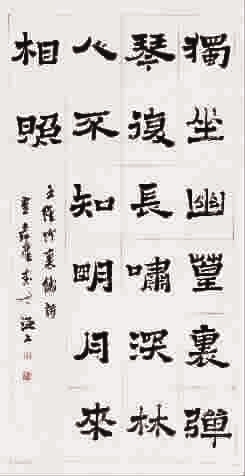 獨坐幽篁裏彈
琴復長嘯深林
人不知明月來
相照
王維竹裏館詩